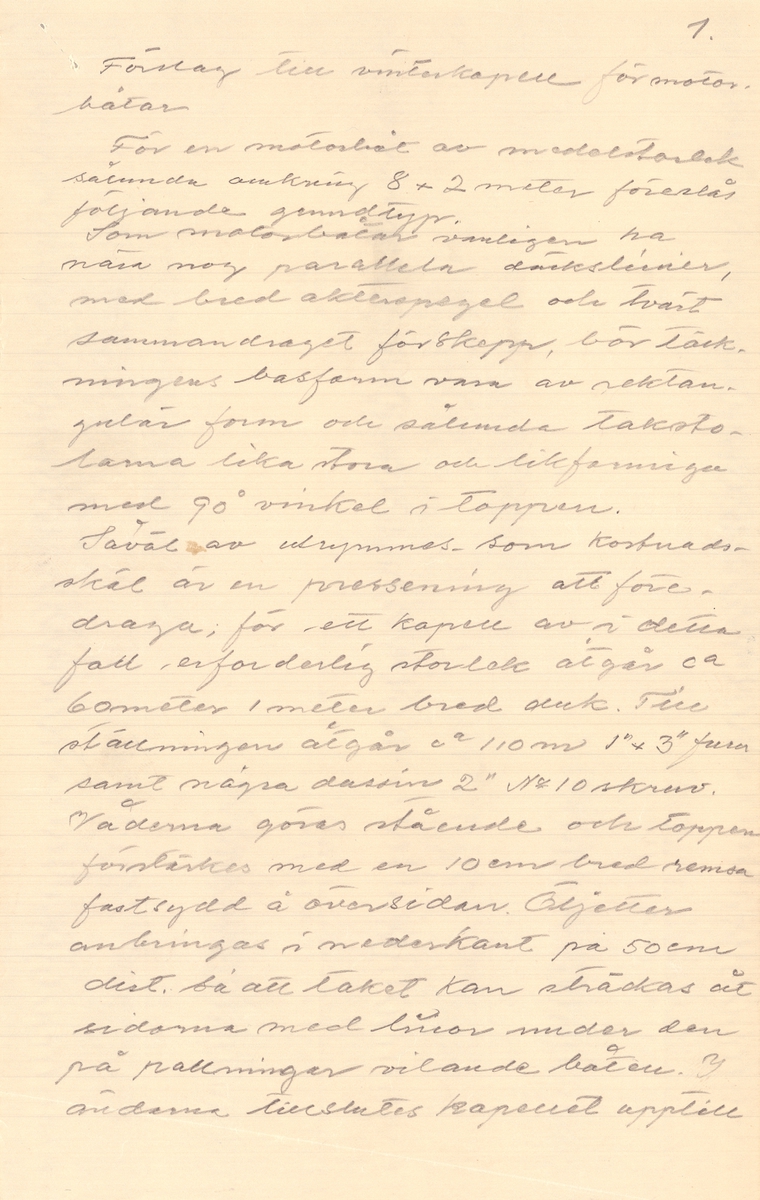 1.
Förslag till vinterkapell för motor-
båtar
För en motorbåt av medelstorlek
sålunda omkring 8 x 2 meter föreslås
följande grundtyp.
Som motorbåtar vanligen ha
nära nog parallela däckslinier,
med bred akterspegel och tvärt
sammandraget förskepp, bör täck-
ningens basform vara av rektan-
gulär form och sålunda taksto-
larna lika stora och likformiga
med 90° vinkel i toppen.
Såväl av utrymmes- som kostnads-
skäl är en pressening att före-
draga, för ett kapell av i detta
fall erforderlig storlek åtgår ca
60 meter 1 meter bred duk. Till
ställningen åtgår ca 110 m 1" x 3" furu
samt några dussin 2" No 10 skruv.
Våderna göras stående och toppen
förstärkes med en 10 cm bred remsa
fastsydd å översidan. Öljetter
anbringas i nederkant på 50 cm
dist. så att taket kan sträckas åt
sidorna med linor under den
på pallningar vilande båten. I
ändarna tillslutes kapellet upptill